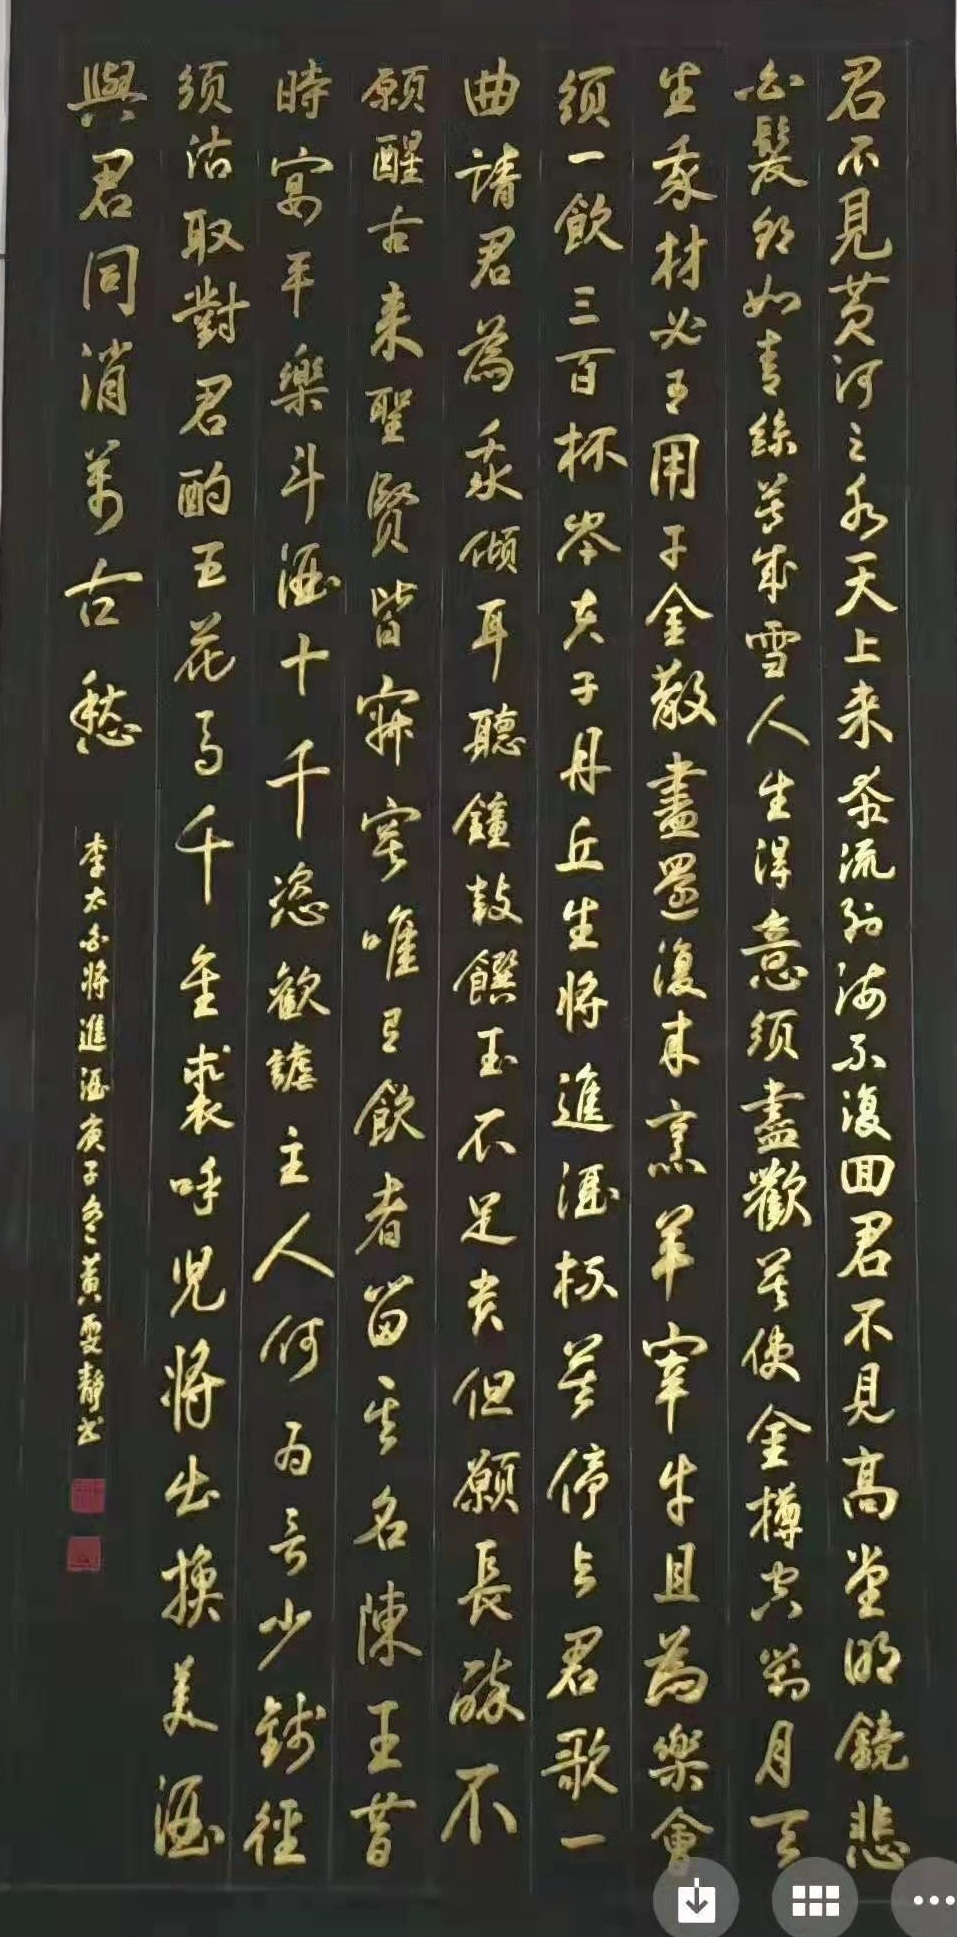 君不見黃河之水天上來奔流到海不復回君不見高堂明鏡悲
白髮朝如青絲暮成雪人生得意須盡歡莫使金樽空對月天
生我材必有用千金散盡還復來烹羊宰牛且為樂會
須一飲三百杯岑夫子丹丘生將進酒杯莫停與君歌一
曲請君為我傾耳聽鐘鼓饌玉不足貴但願長醉不
願醒古來聖賢皆寂寞唯有飲者留其名陳王昔
時宴平樂斗酒十千恣歡謔主人何為言少錢徑
須沽取對君酌五花馬千金裘呼兒將出換美酒
與君同消萬古愁
李太白將進酒庚子冬黃雯靜書